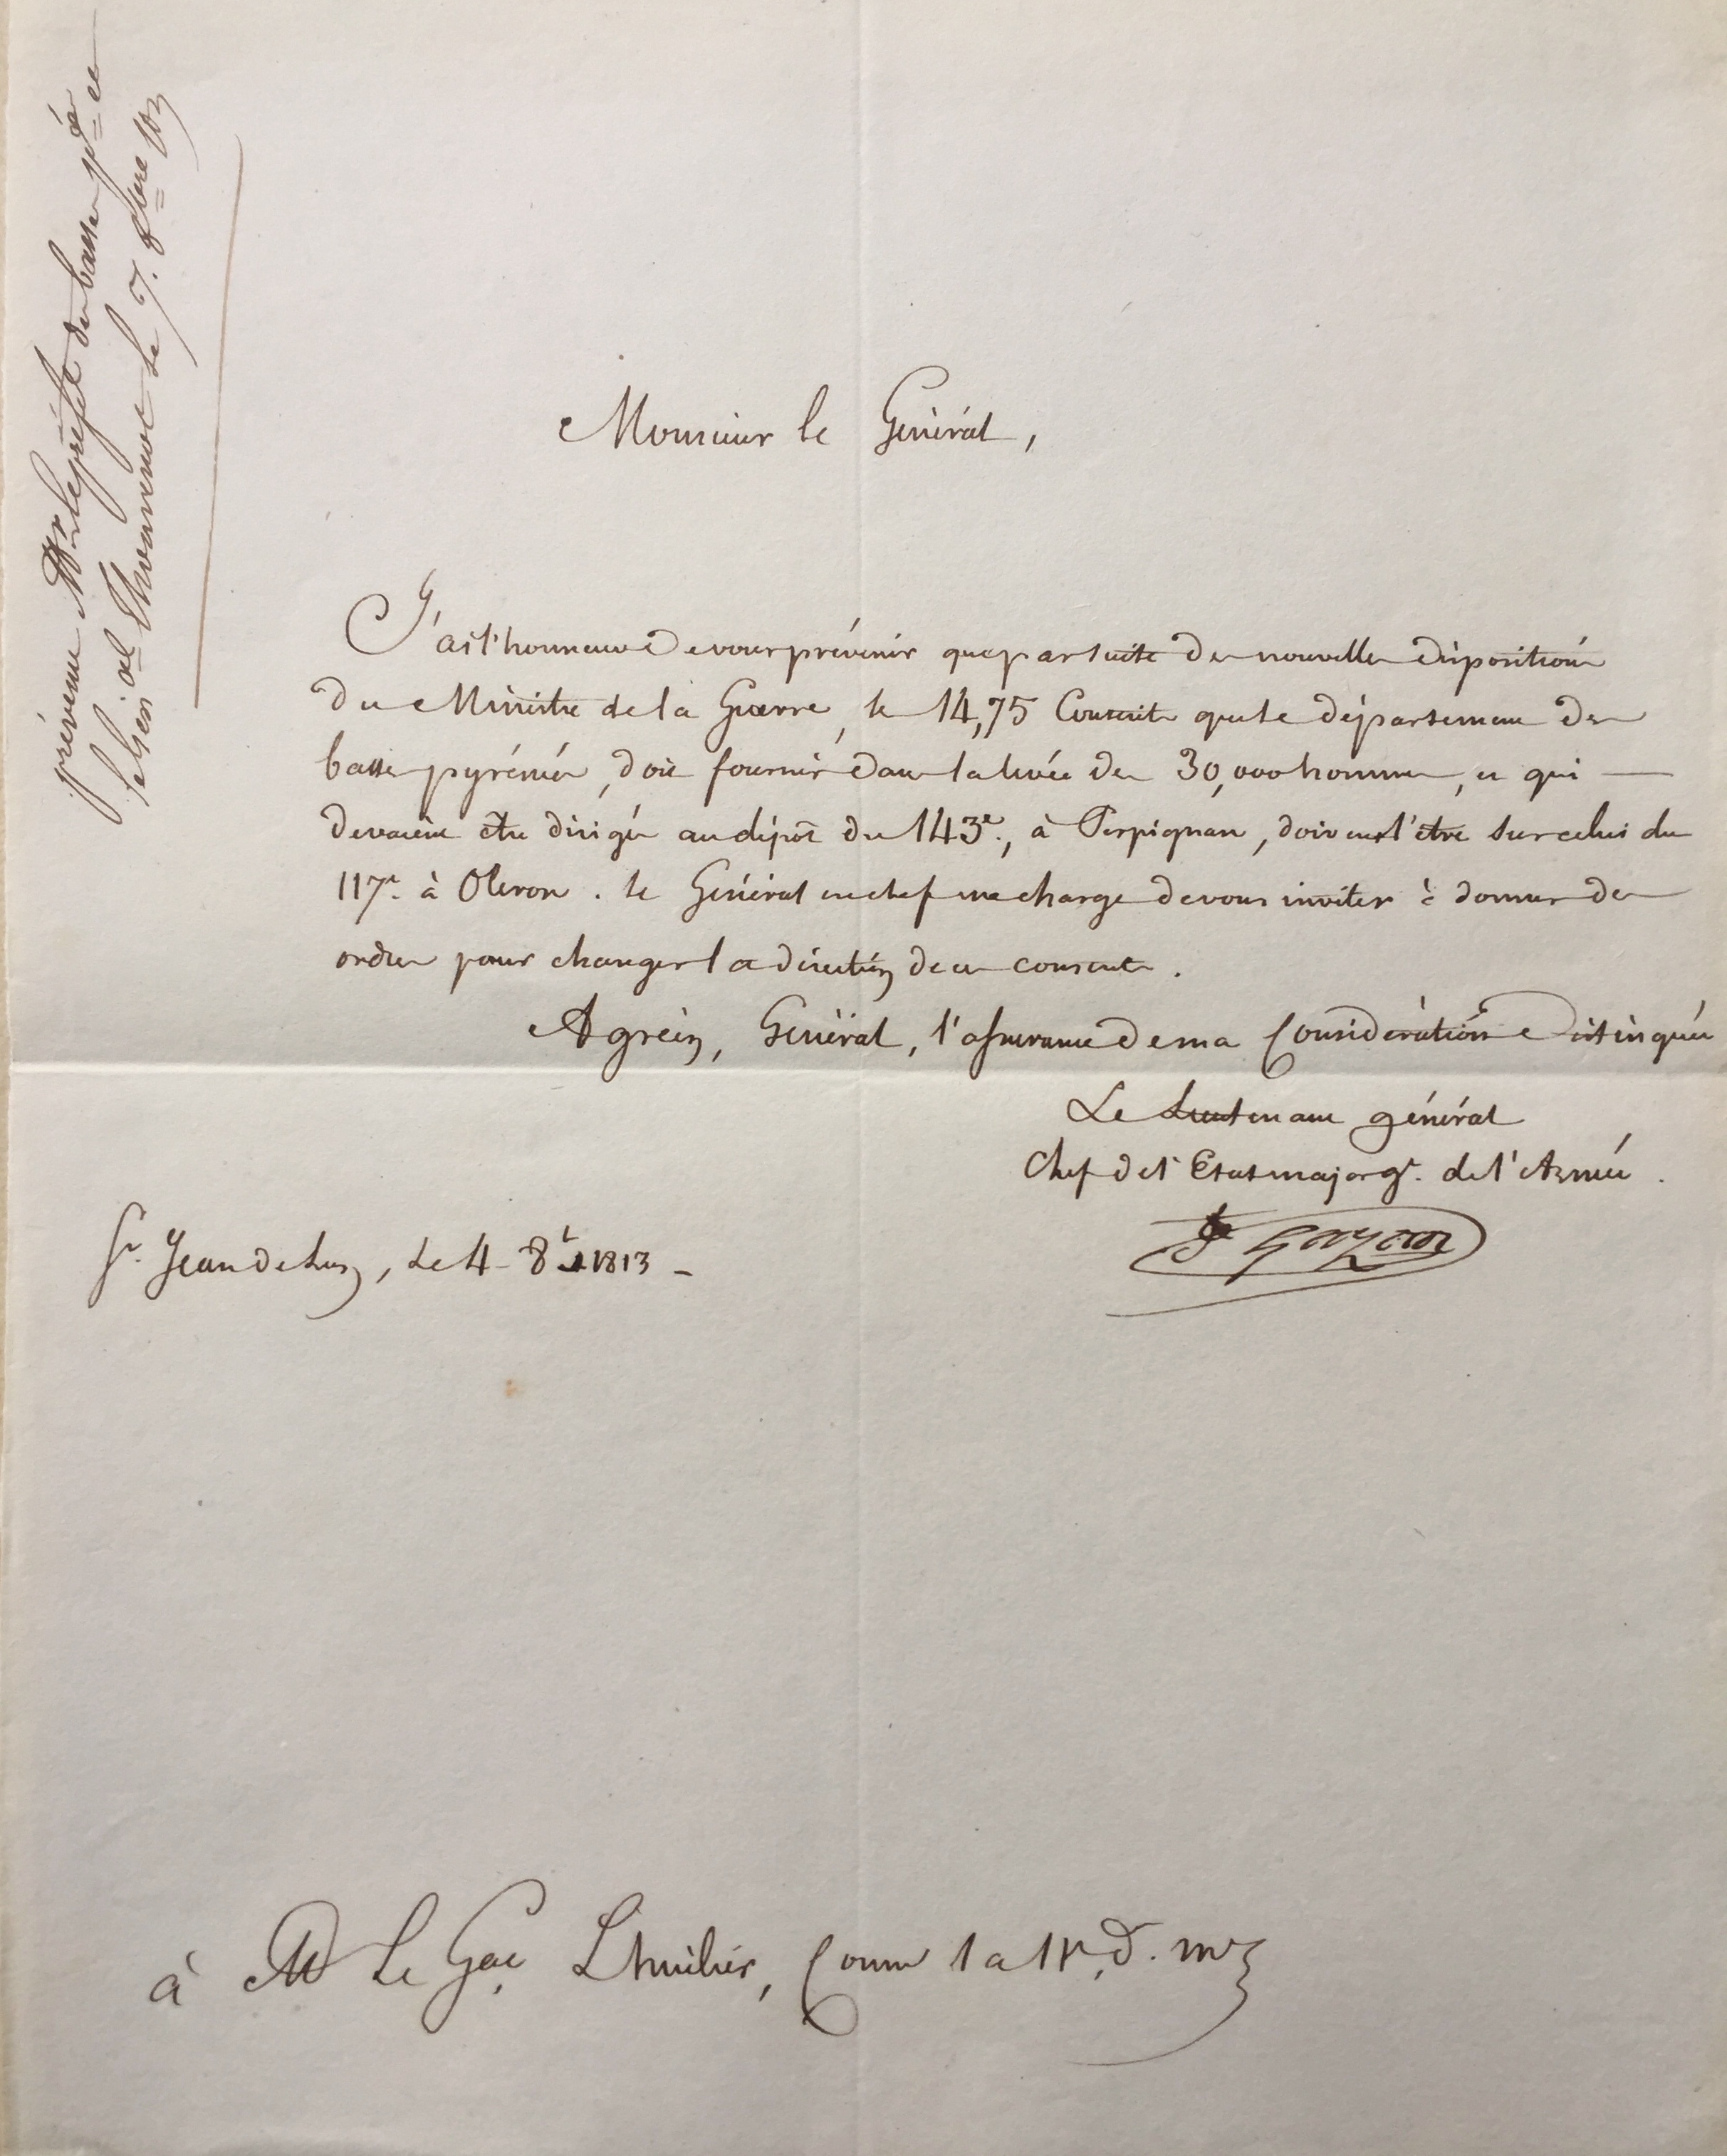 prévenu Mr le préfet des basses pées et
le Gén al Thouvenot le 7. 8bre
Monsieur le Général,
J'ai l'honneur de vous prévenir que par suite de nouvelles dispositions
du Ministre de la Guerre, les 14,75 Conscrits que le département des
basses pyrénées, doit fournir dans la levée des 30,000 hommes, et qui
devaient être dirigés au dépôt du 143e., à Perpignan, doivent l'être sur celui du
117e. à Oleron. le Général en chef me charge de vous inviter à donner des
ordres pour changer la direction de ces conscrits.
Agréez, Général, l'assurance de ma Considération Distinguée
Le Lieutenant général
Chef de l'Etat major gl. de l'Armée.
Gazan
St. Jean de Luz, le 4 8bre 1813
à Mr Le Gal Lhuilier, Comt la 11e, d. mre